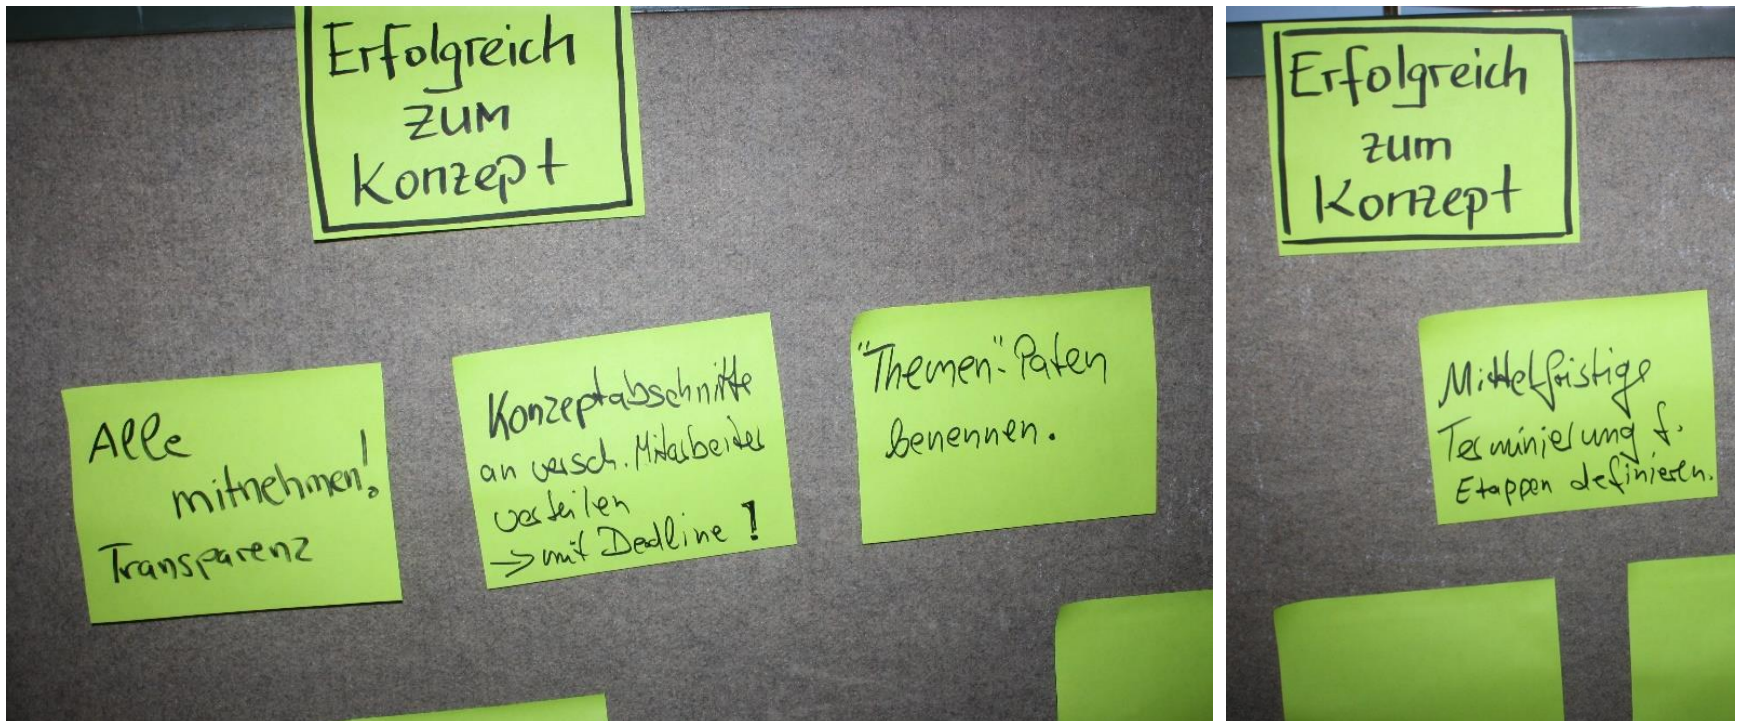 Erfolgreich
zum
Konzept
Alle
mitnehmen!
Transparenz
Konzeptabschnitte
an versch. Mitarbeiter
verteilen
-> mit Dedline !
"Themen"-Paten
benennen.
Erfolgreich
zum
Konzept
Mittelfristige
Terminierung f.
Etappen definieren.